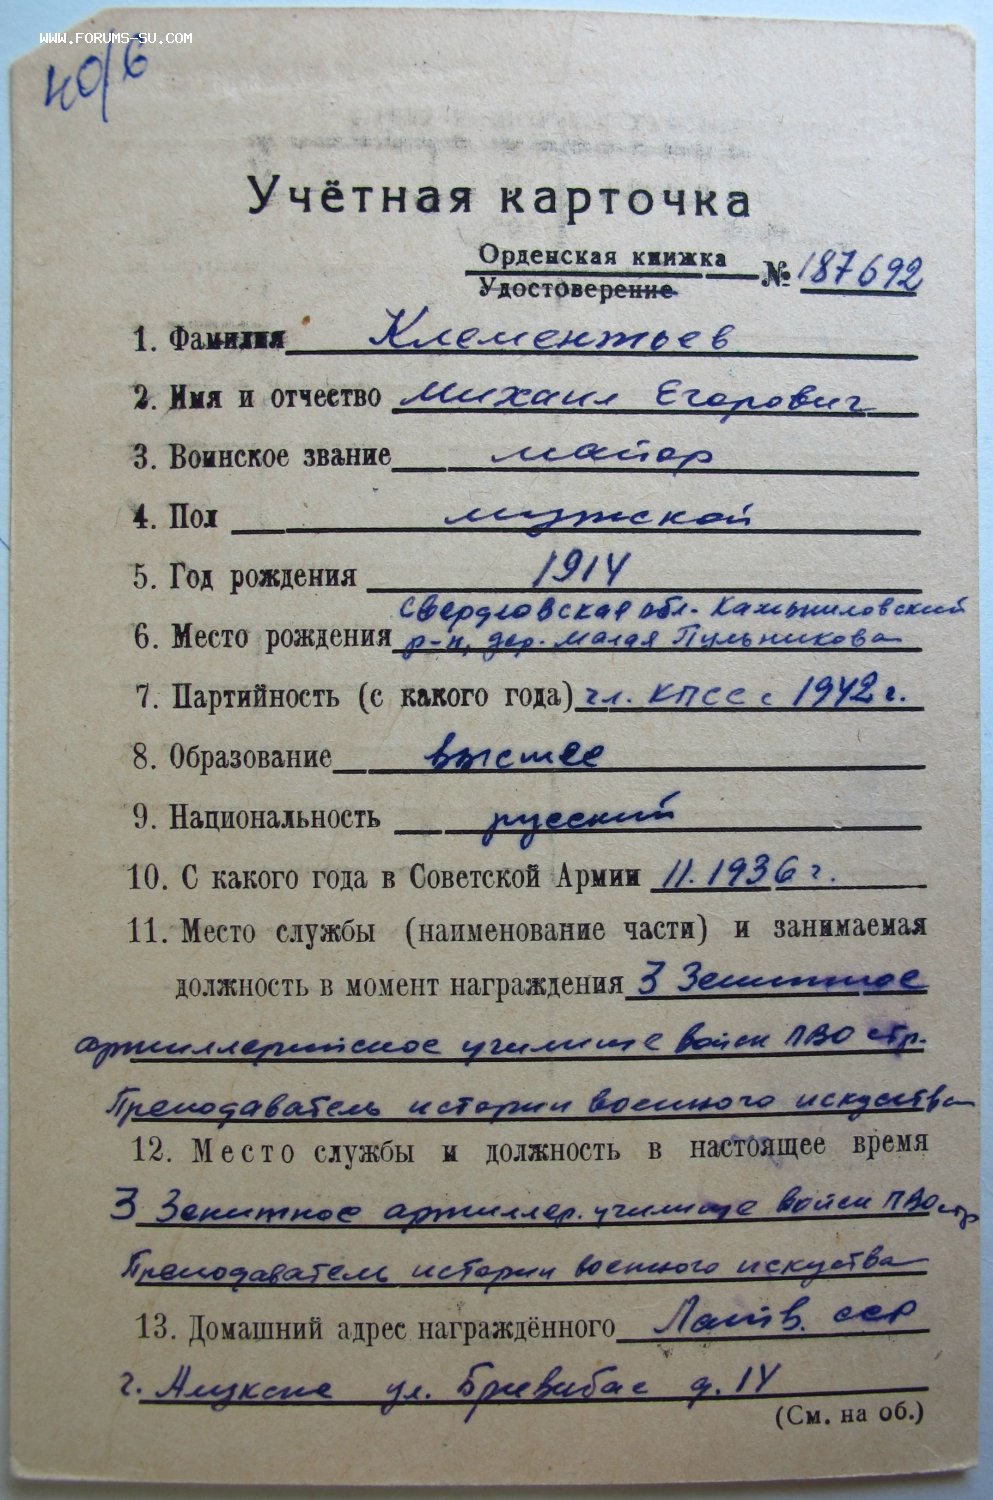 WWW.FORUMS-SU.COM
40/6
Учётная карточка
Орденская книжка
Удостоверение
№ 187692
1. Фамилия Клементьев
2. Имя и отчество Михаил Егорович
3. Воинское звание майор
4. Пол мужской
5. Год рождения 1914
Свердловская обл.
6. Место рождения р-н, дер. Малая Пульникова
7. Партийность (с какого года) чл. КПСС с 1942 г.
8. Образование высшее
9. Национальность русский
10. С какого года в Советской Армии 11.1936 г.
11. Место службы (наименование части) и занимаемая
должность в момент награждения 3 Зенитное
артиллерийское училище войск ПВО стр.
Преподаватель истории военного искусства
12. Место службы и должность в настоящее время
3 Зенитное артиллер. училище войск ПВО стр
Преподаватель истории военного искуства
13. Домашний адрес награждённого Латв. ССР
г. Алуксне ул. Бривибас д. 14
(См. на об.)